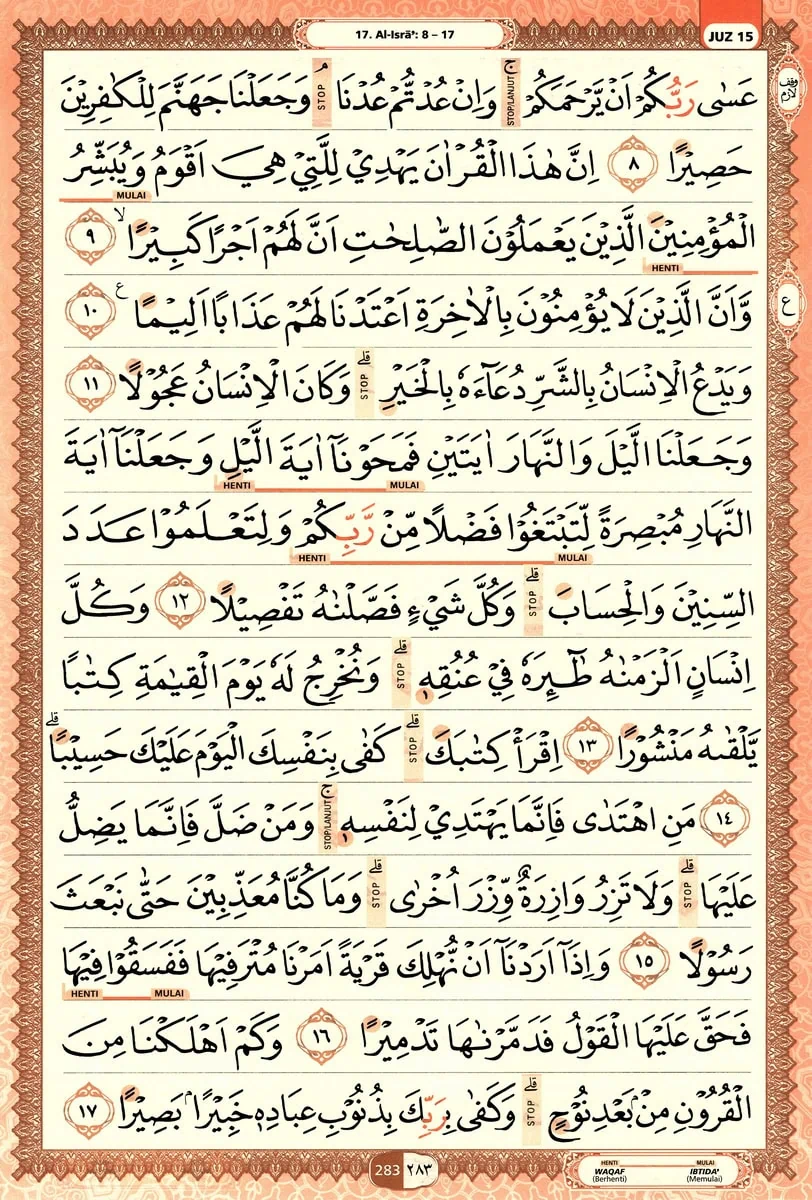 17. Al-Isrā': 8 – 17
JUZ 15
وقف لازم
عَسٰى رَبُّكُمْ اَنْ يَّرْحَمَكُمْۚ STOP/LANJUT وَاِنْ عُدْتُّمْ عُدْنَاۘ STOP وَجَعَلْنَا جَهَنَّمَ لِلْكٰفِرِيْنَ
حَصِيْرًا ٨ اِنَّ هٰذَا الْقُرْاٰنَ يَهْدِيْ لِلَّتِيْ هِيَ اَقْوَمُ وَيُبَشِّرُ
MULAI
الْمُؤْمِنِيْنَ الَّذِيْنَ يَعْمَلُوْنَ الصّٰلِحٰتِ اَنَّ لَهُمْ اَجْرًا كَبِيْرًاۙ ٩
HENTI
وَّاَنَّ الَّذِيْنَ لَا يُؤْمِنُوْنَ بِالْاٰخِرَةِ اَعْتَدْنَا لَهُمْ عَذَابًا اَلِيْمًا ع ١٠
ع
وَيَدْعُ الْاِنْسَانُ بِالشَّرِّ دُعَاۤءَهٗ بِالْخَيْرِۗ STOP وَكَانَ الْاِنْسَانُ عَجُوْلًا ١١
وَجَعَلْنَا الَّيْلَ وَالنَّهَارَ اٰيَتَيْنِ فَمَحَوْنَآ اٰيَةَ الَّيْلِ وَجَعَلْنَآ اٰيَةَ
MULAI HENTI
النَّهَارِ مُبْصِرَةً لِّتَبْتَغُوْا فَضْلًا مِّنْ رَّبِّكُمْ وَلِتَعْلَمُوْا عَدَدَ
MULAI HENTI
السِّنِيْنَ وَالْحِسَابَۗ STOP وَكُلَّ شَيْءٍ فَصَّلْنٰهُ تَفْصِيْلًا ١٢ وَكُلَّ
اِنْسَانٍ اَلْزَمْنٰهُ طٰۤىِٕرَهٗ فِيْ عُنُقِهٖۗ STOP وَنُخْرِجُ لَهٗ يَوْمَ الْقِيٰمَةِ كِتٰبًا
يَّلْقٰىهُ مَنْشُوْرًا ١٣ اِقْرَأْ كِتٰبَكَۗ STOP كَفٰى بِنَفْسِكَ الْيَوْمَ عَلَيْكَ حَسِيْبًاۗ
١٤ مَنِ اهْتَدٰى فَاِنَّمَا يَهْتَدِيْ لِنَفْسِهٖۚ STOP/LANJUT وَمَنْ ضَلَّ فَاِنَّمَا يَضِلُّ
عَلَيْهَاۗ STOP وَلَا تَزِرُ وَازِرَةٌ وِّزْرَ اُخْرٰىۗ STOP وَمَا كُنَّا مُعَذِّبِيْنَ حَتّٰى نَبْعَثَ
رَسُوْلًا ١٥ وَاِذَآ اَرَدْنَآ اَنْ نُّهْلِكَ قَرْيَةً اَمَرْنَا مُتْرَفِيْهَا فَفَسَقُوْا فِيْهَا
MULAI HENTI
فَحَقَّ عَلَيْهَا الْقَوْلُ فَدَمَّرْنٰهَا تَدْمِيْرًا ١٦ وَكَمْ اَهْلَكْنَا مِنَ
الْقُرُوْنِ مِنْۢ بَعْدِ نُوْحٍۗ STOP وَكَفٰى بِرَبِّكَ بِذُنُوْبِ عِبَادِهٖ خَبِيْرًاۢ بَصِيْرًا ١٧
283 ٢٨٣
HENTI WAQAF (Berhenti)
MULAI IBTIDA' (Memulai)